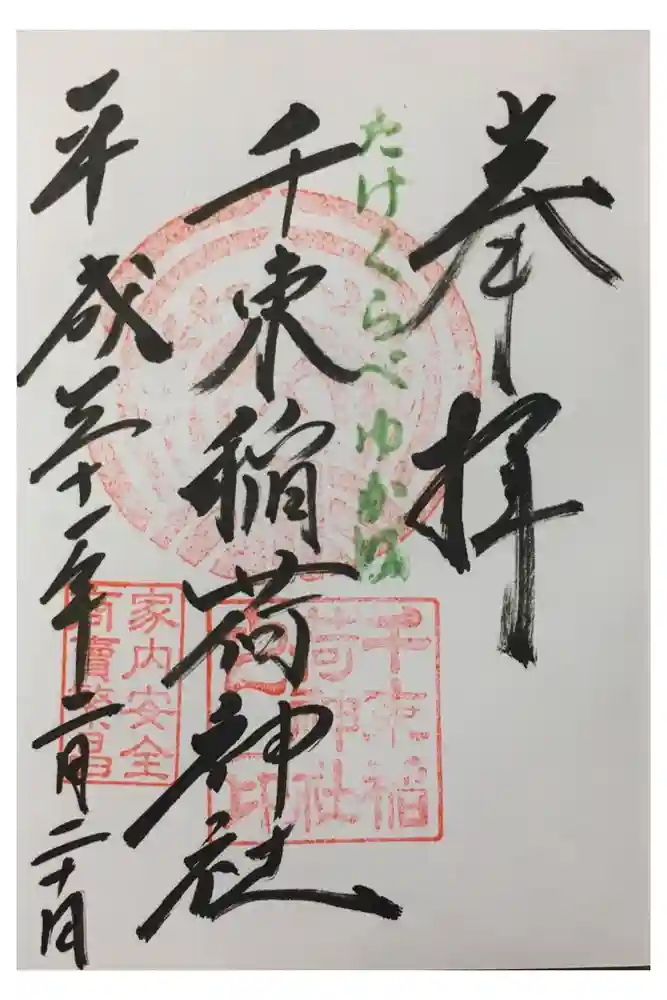 奉拝
たけくらべゆか
千束稲荷神社
千束稲
荷神社
印
平成三十一年二月二十日
家内安全
商賣繁昌